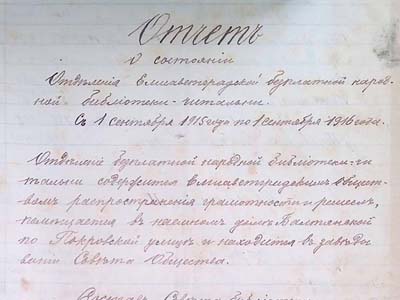 Отчетъ
О состояніи
Отдѣленія Елисаветградской безплатной народ-
ной библіотеки-читальни.
Съ 1 сентября 1915 года по 1 сентября 1916 года.
Отдѣленіе безплатной народной библіотеки-чи
тальни содержится Елисаветградскимъ Общест-
вомъ распространенія грамотности и ремеслъ,
помѣщается въ наемномъ домѣ
по Покровской улицѣ и находится въ завѣды
ваніи Совѣта Общества.
Совѣта